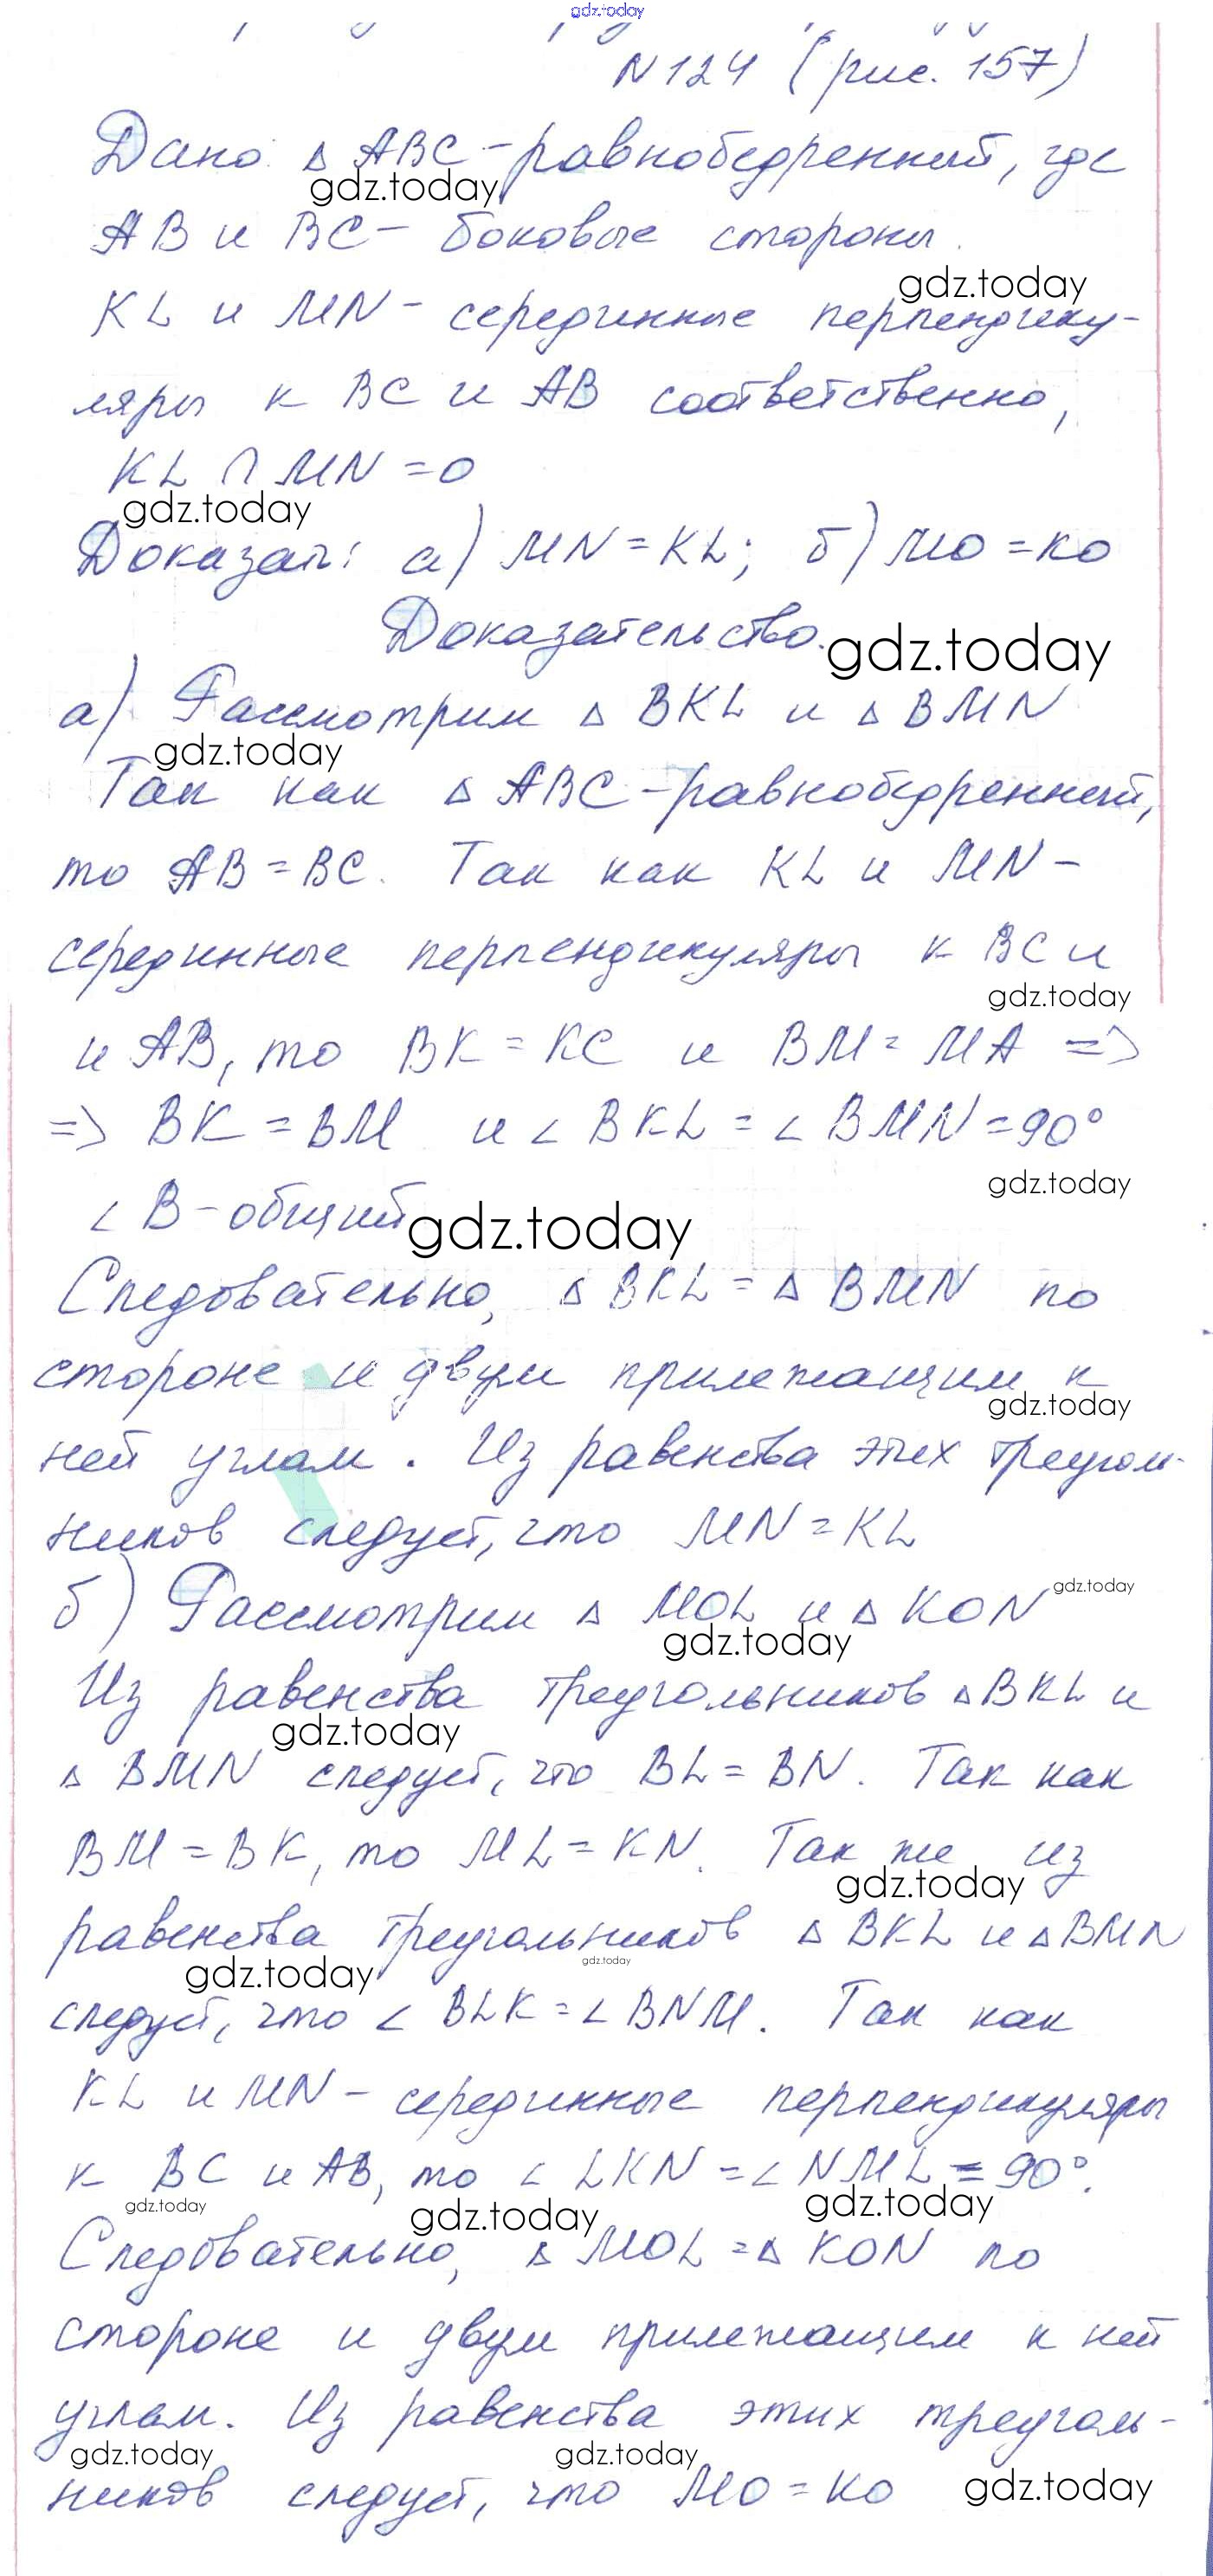 gdz.today
N 124 (рис. 157)
Дано: Δ ABC - равнобедренный, где
gdz.today
AB и BC - боковые стороны.
gdz.today
KL и MN - серединные перпендику-
ляры к BC и AB соответственно,
KL ∩ MN = O
gdz.today
Доказать: а) MN = KL; б) MO = KO
Доказательство.
gdz.today
а) Рассмотрим Δ BKL и Δ BMN
gdz.today
Так как Δ ABC - равнобедренный,
то AB = BC. Так как KL и MN -
серединные перпендикуляры к BC и
gdz.today
и AB, то BK = KC и BM = MA =>
=> BK = BM и ∠ BKL = ∠ BMN = 90°
gdz.today
∠ B - общий
gdz.today
Следовательно, Δ BKL = Δ BMN по
стороне и двум прилежащим к
gdz.today
ней углам. Из равенства этих треуголь-
ников следует, что MN = KL
б) Рассмотрим Δ MOL и Δ KON
gdz.today
gdz.today
Из равенства треугольников Δ BKL и
gdz.today
Δ BMN следует, что BL = BN. Так как
BM = BK, то ML = KN. Так же из
gdz.today
равенства треугольников Δ BKL и Δ BMN
gdz.today
gdz.today
следует, что ∠ BLK = ∠ BNM. Так как
KL и MN - серединные перпендикуляры
к BC и AB, то ∠ LKN = ∠ NML = 90°.
gdz.today
gdz.today
gdz.today
Следовательно, Δ MOL = Δ KON по
стороне и двум прилежащим к ней
углам. Из равенства этих треуголь-
gdz.today
gdz.today
ников следует, что MO = KO
gdz.today